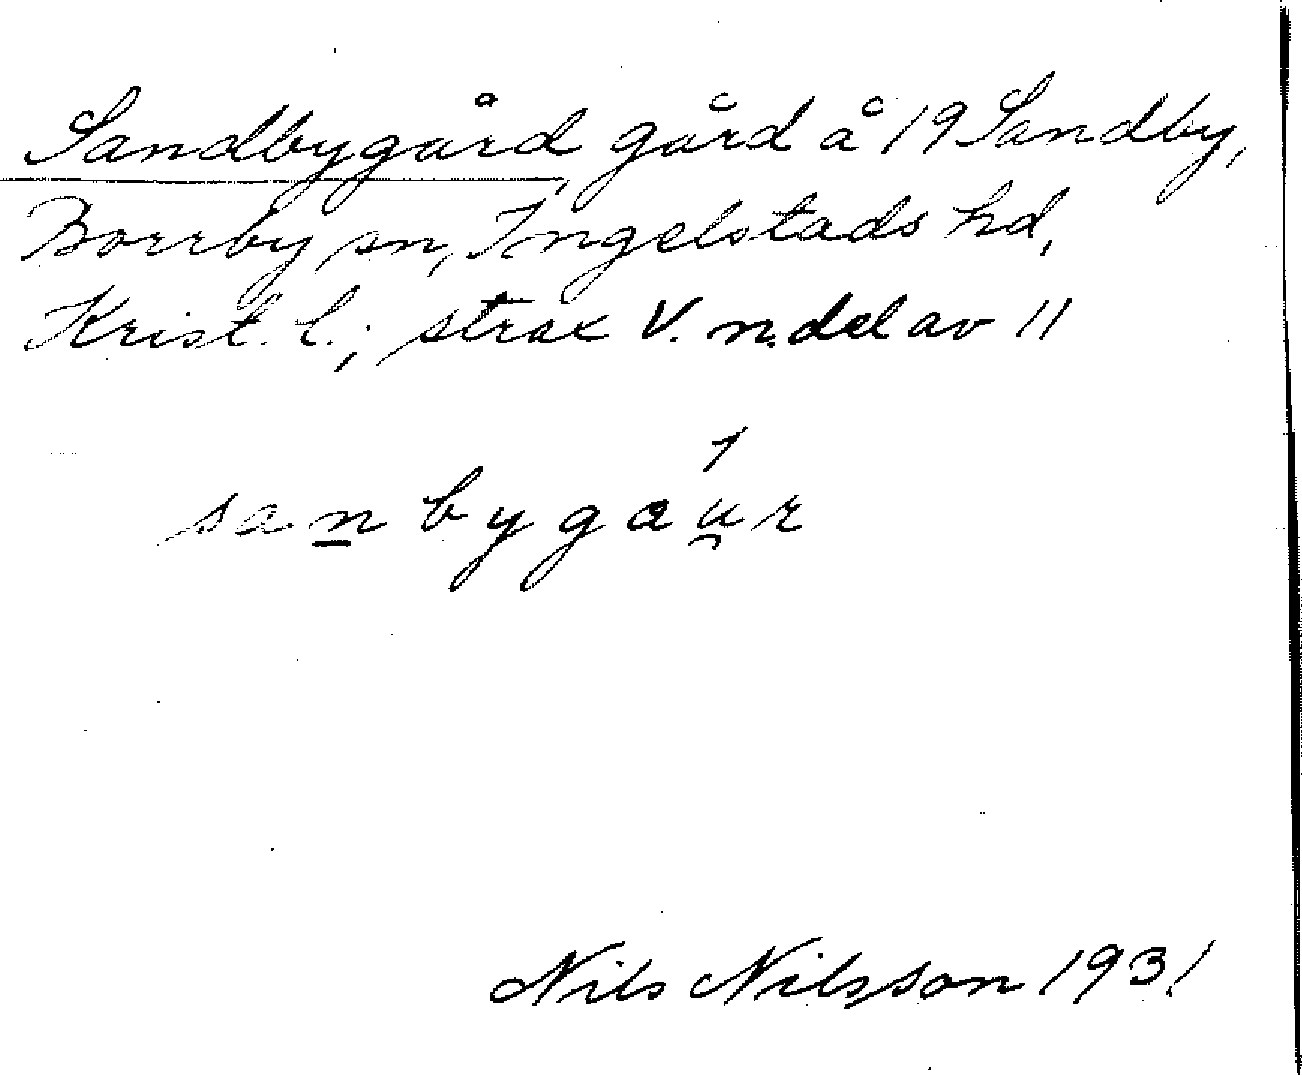 Sandbygård, gård å 19 Sandby,
Borrby sn, Ingelstads hd,
Krist. l.; strax V. n. del av 11
sanbygáur
Nils Nilsson 1931